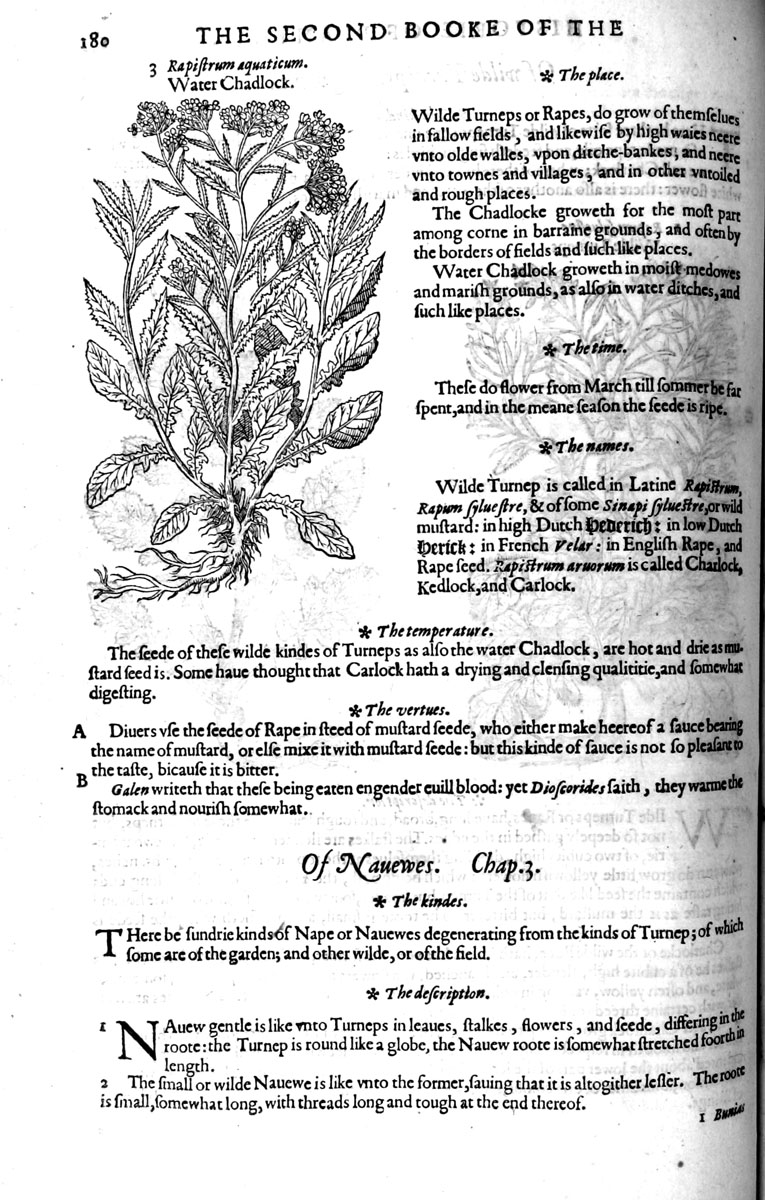 180
THE SECOND BOOKE OF THE
3 Rapiſtrum aquaticum.
Water Chadlock.
✻ The place.
Wilde Turneps or Rapes, do grow of themſelues
in fallow fields, and likewiſe by high waies neere
vnto olde walles, vpon ditche-bankes, and neere
vnto townes and villages, and in other vntoiled
and rough places.
The Chadlocke groweth for the moſt part
among corne in barraine grounds, and often by
the borders of fields and ſuch like places.
Water Chadlock groweth in moiſt medowes
and mariſh grounds, as alſo in water ditches, and
ſuch like places.
✻ The time.
Theſe do flower from March till ſommer be far
ſpent, and in the meane ſeaſon the ſeede is ripe.
✻ The names.
Wilde Turnep is called in Latine Rapiſtrum,
Rapum ſylueſtre, & of ſome Sinapi ſylueſtre, or wild
muſtard: in high Dutch Hederich: in low Dutch
Herick: in French Velar: in Engliſh Rape, and
Rape ſeed. Rapiſtrum aruorum is called Charlock,
Kedlock, and Carlock.
✻ The temperature.
The ſeede of theſe wilde kindes of Turneps as alſo the water Chadlock, are hot and drie as mu-
ſtard ſeed is. Some haue thought that Carlock hath a drying and clenſing qualititie, and ſomewhat
digeſting.
✻ The vertues.
A Diuers vſe the ſeede of Rape in ſteed of muſtard ſeede, who either make heereof a ſauce bearing
the name of muſtard, or elſe mixe it with muſtard ſeede: but this kinde of ſauce is not ſo pleaſant to
the taſte, bicauſe it is bitter.
B Galen writeth that theſe being eaten engender euill blood: yet Dioſcorides ſaith, they warme the
ſtomack and nouriſh ſomewhat.
Of Nauewes. Chap.3.
✻ The kindes.
THere be ſundrie kinds of Nape or Nauewes degenerating from the kinds of Turnep; of which
ſome are of the garden; and other wilde, or of the field.
✻ The deſcription.
1 NAuew gentle is like vnto Turneps in leaues, ſtalkes, flowers, and ſeede, differing in the
roote: the Turnep is round like a globe, the Nauew roote is ſomewhat ſtretched foorth in
length.
2 The ſmall or wilde Nauewe is like vnto the former, ſauing that it is altogither leſſer. The roote
is ſmall, ſomewhat long, with threads long and tough at the end thereof.
1 Bunias